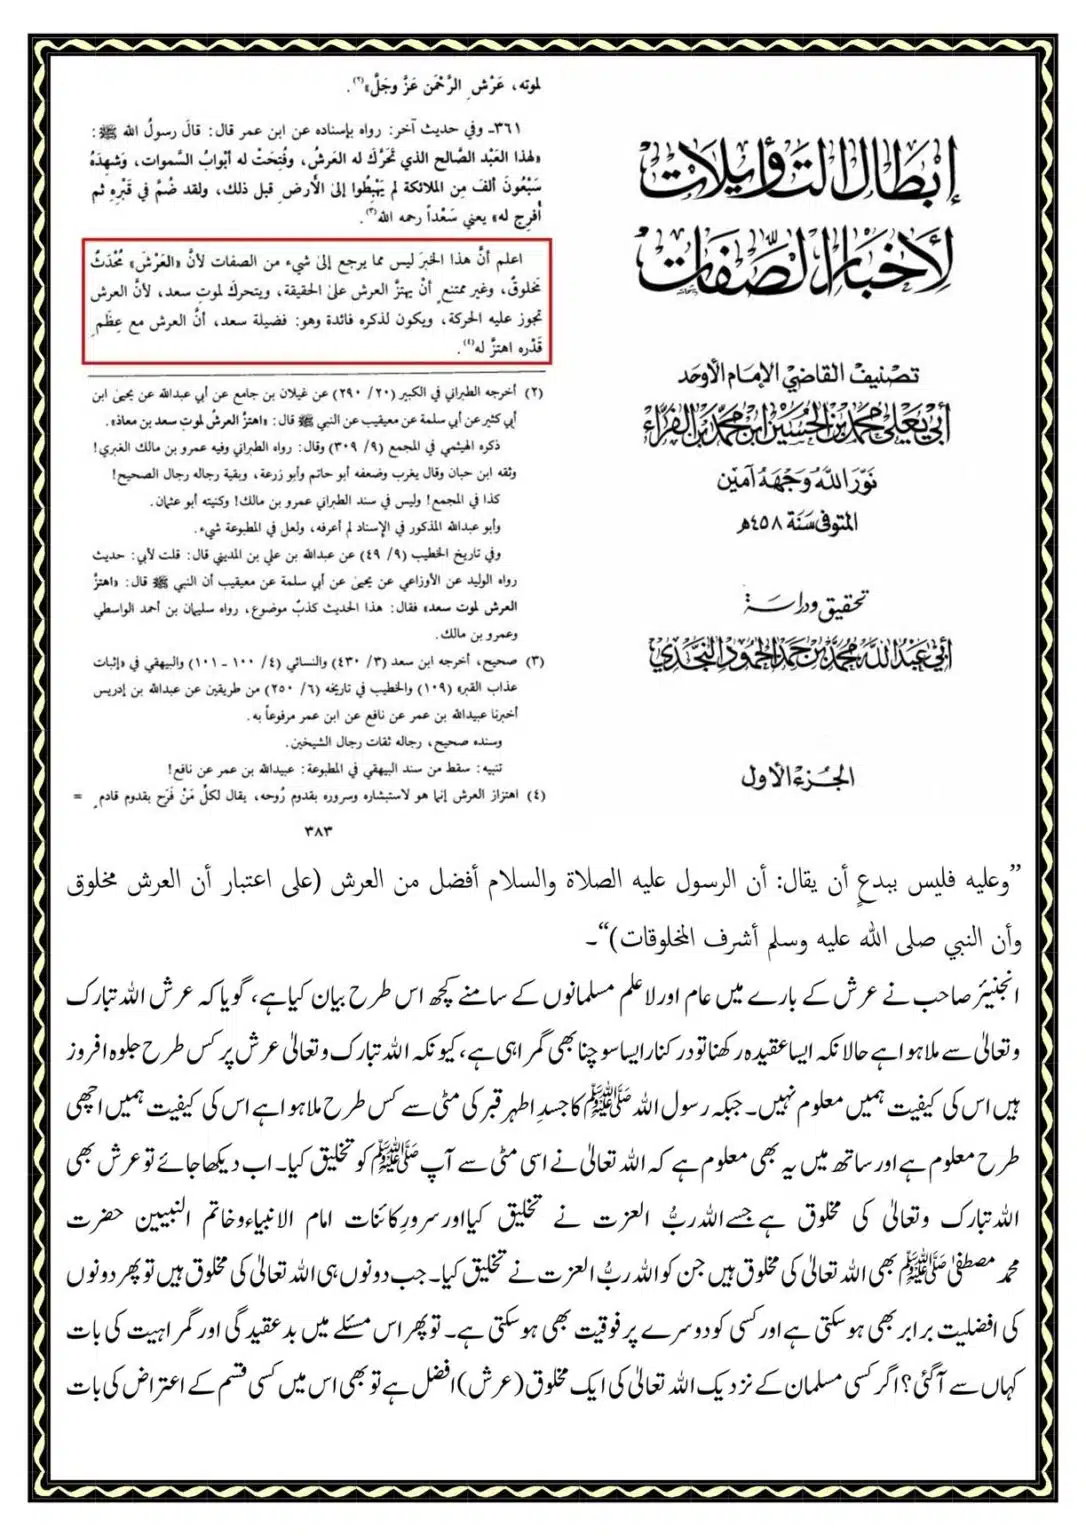 إبطال التأويلات
لأخبار الصفات
تصنيف القاضي الإمام الأوحد
أبي يعلى محمد بن الحسين ابن محمد بن الفراء
نور الله وجهه آمين
المتوفى سنة ٤٥٨هـ
تحقيق ودراسة
أبي عبد الله محمد بن حمد الحمود النجدي
الجزء الأول
لموته، عَرْش الرَّحْمَن عَزَّ وجَلَّ»(٢).
٣٦١ـ وفي حديث آخر: رواه بإسناده عن ابن عمر قال: قالَ رسولُ الله ﷺ:
«لهذا العَبْد الصَّالح الذي تَحَرَّكَ له العَرشُ، وفُتِحَتْ له أبْوابُ السَّموات، وشَهِدَهُ
سَبْعُونَ ألفَ مِن الملائكة لم يَهْبِطُوا إلىٰ الأرضِ قبل ذلك، ولقد ضُمَّ في قَبْرِهِ ثم
أُفْرِج له» يعني سَعْداً رحمه الله(٣).
اعلم أنَّ هذا الخبرَ ليس مما يرجع إلىٰ شيء من الصفات لأنَّ «العَرْشَ» مُحْدَثٌ
مَخلوقٌ، وغير ممتنعٍ أنْ يهتزَّ العرش علىٰ الحقيقة، ويتحركَ لموتِ سعد، لأنَّ العرش
تجوز عليه الحركة، ويكون لذكره فائدة وهو: فضيلة سعد، أنَّ العرش مع عِظَمِ
قَدْره اهتزَّ له(٤).
(٢) أخرجه الطبراني في الكبير (٢٠/ ٢٩٠) عن غيلان بن جامع عن أبي عبدالله عن يحيىٰ ابن
أبي كثير عن أبي سلمة عن معيقيب عن النبي ﷺ قال: «اهتزَّ العرشُ لموتِ سعد بن معاذ».
ذكره الهيثمي في المجمع (٩/ ٣٠٩) وقال: رواه الطبراني وفيه عمرو بن مالك الغبري!
وثقه ابن حبان وقال يغرب وضعفه أبو حاتم وأبو زرعة، وبقية رجاله رجال الصحيح!
كذا في المجمع! وليس في سند الطبراني عمرو بن مالك! وكنيته أبو عثمان.
وأبو عبدالله المذكور في الإسناد لم أعرفه، ولعل في المطبوعة شيء.
وفي تاريخ الخطيب (٩/ ٤٩) عن عبدالله بن علي بن المديني قال: قلت لأبي: حديث
رواه الوليد عن الأوزاعي عن يحيىٰ عن أبي سلمة عن معيقيب أن النبي ﷺ قال: «اهتزَّ
العرش لموت سعد» فقال: هذا الحديث كذبٌ موضوع، رواه سليمان بن أحمد الواسطي
وعمرو بن مالك.
(٣) صحيح، أخرجه ابن سعد (٣/ ٤٣٠) والنسائي (٤/ ١٠٠ - ١٠١) والبيهقي في «إثبات
عذاب القبر» (١٠٩) والخطيب في تاريخه (٦/ ٢٥٠) من طريقين عن عبدالله بن إدريس
أخبرنا عبيدالله بن عمر عن نافع عن ابن عمر مرفوعاً به.
وسنده صحيح، رجاله ثقات رجال الشيخين.
تنبيه: سقط من سند البيهقي في المطبوعة: عبيدالله بن عمر عن نافع!
(٤) اهتزاز العرش إنما هو لاستبشاره وسروره بقدوم رُوحه، يقال لكلِّ مَنْ فَرَح بقدوم قادمٍ =
٣٨٣
”وعليه فليس ببدعٍ أن يقال: أن الرسول عليه الصلاة والسلام أفضل من العرش (على اعتبار أن العرش مخلوق
وأن النبي صلى الله عليه وسلم أشرف المخلوقات)“۔
انجنیئر صاحب نے عرش کے بارے میں عام اور لاعلم مسلمانوں کے سامنے کچھ اس طرح بیان کیا ہے، گویا کہ عرش اللہ تبارک
وتعالیٰ سے ملا ہوا ہے حالانکہ ایسا عقیدہ رکھنا تو درکنار ایسا سوچنا بھی گمراہی ہے، کیونکہ اللہ تبارک وتعالیٰ عرش پر کس طرح جلوہ افروز
ہیں اس کی کیفیت ہمیں معلوم نہیں۔ جبکہ رسول اللہ ﷺ کا جسدِ اطہر قبر کی مٹی سے کس طرح ملا ہوا ہے اس کی کیفیت ہمیں اچھی
طرح معلوم ہے اور ساتھ میں یہ بھی معلوم ہے کہ اللہ تعالیٰ نے اسی مٹی سے آپ ﷺ کو تخلیق کیا۔ اب دیکھا جائے تو عرش بھی
اللہ تبارک وتعالیٰ کی مخلوق ہے جسے اللہ ربُّ العزت نے تخلیق کیا اور سرورِ کائنات امام الانبیاء وخاتم النبیین حضرت
محمد مصطفیٰ ﷺ بھی اللہ تعالیٰ کی مخلوق ہیں جن کو اللہ ربُّ العزت نے تخلیق کیا۔ جب دونوں ہی اللہ تعالیٰ کی مخلوق ہیں تو پھر دونوں
کی افضلیت برابر بھی ہوسکتی ہے اور کسی کو دوسرے پر فوقیت بھی ہوسکتی ہے۔ تو پھر اس مسئلے میں بدعقیدگی اور گمراہیت کی بات
کہاں سے آگئی؟ اگر کسی مسلمان کے نزدیک اللہ تعالیٰ کی ایک مخلوق (عرش) افضل ہے تو بھی اس میں کسی قسم کے اعتراض کی بات